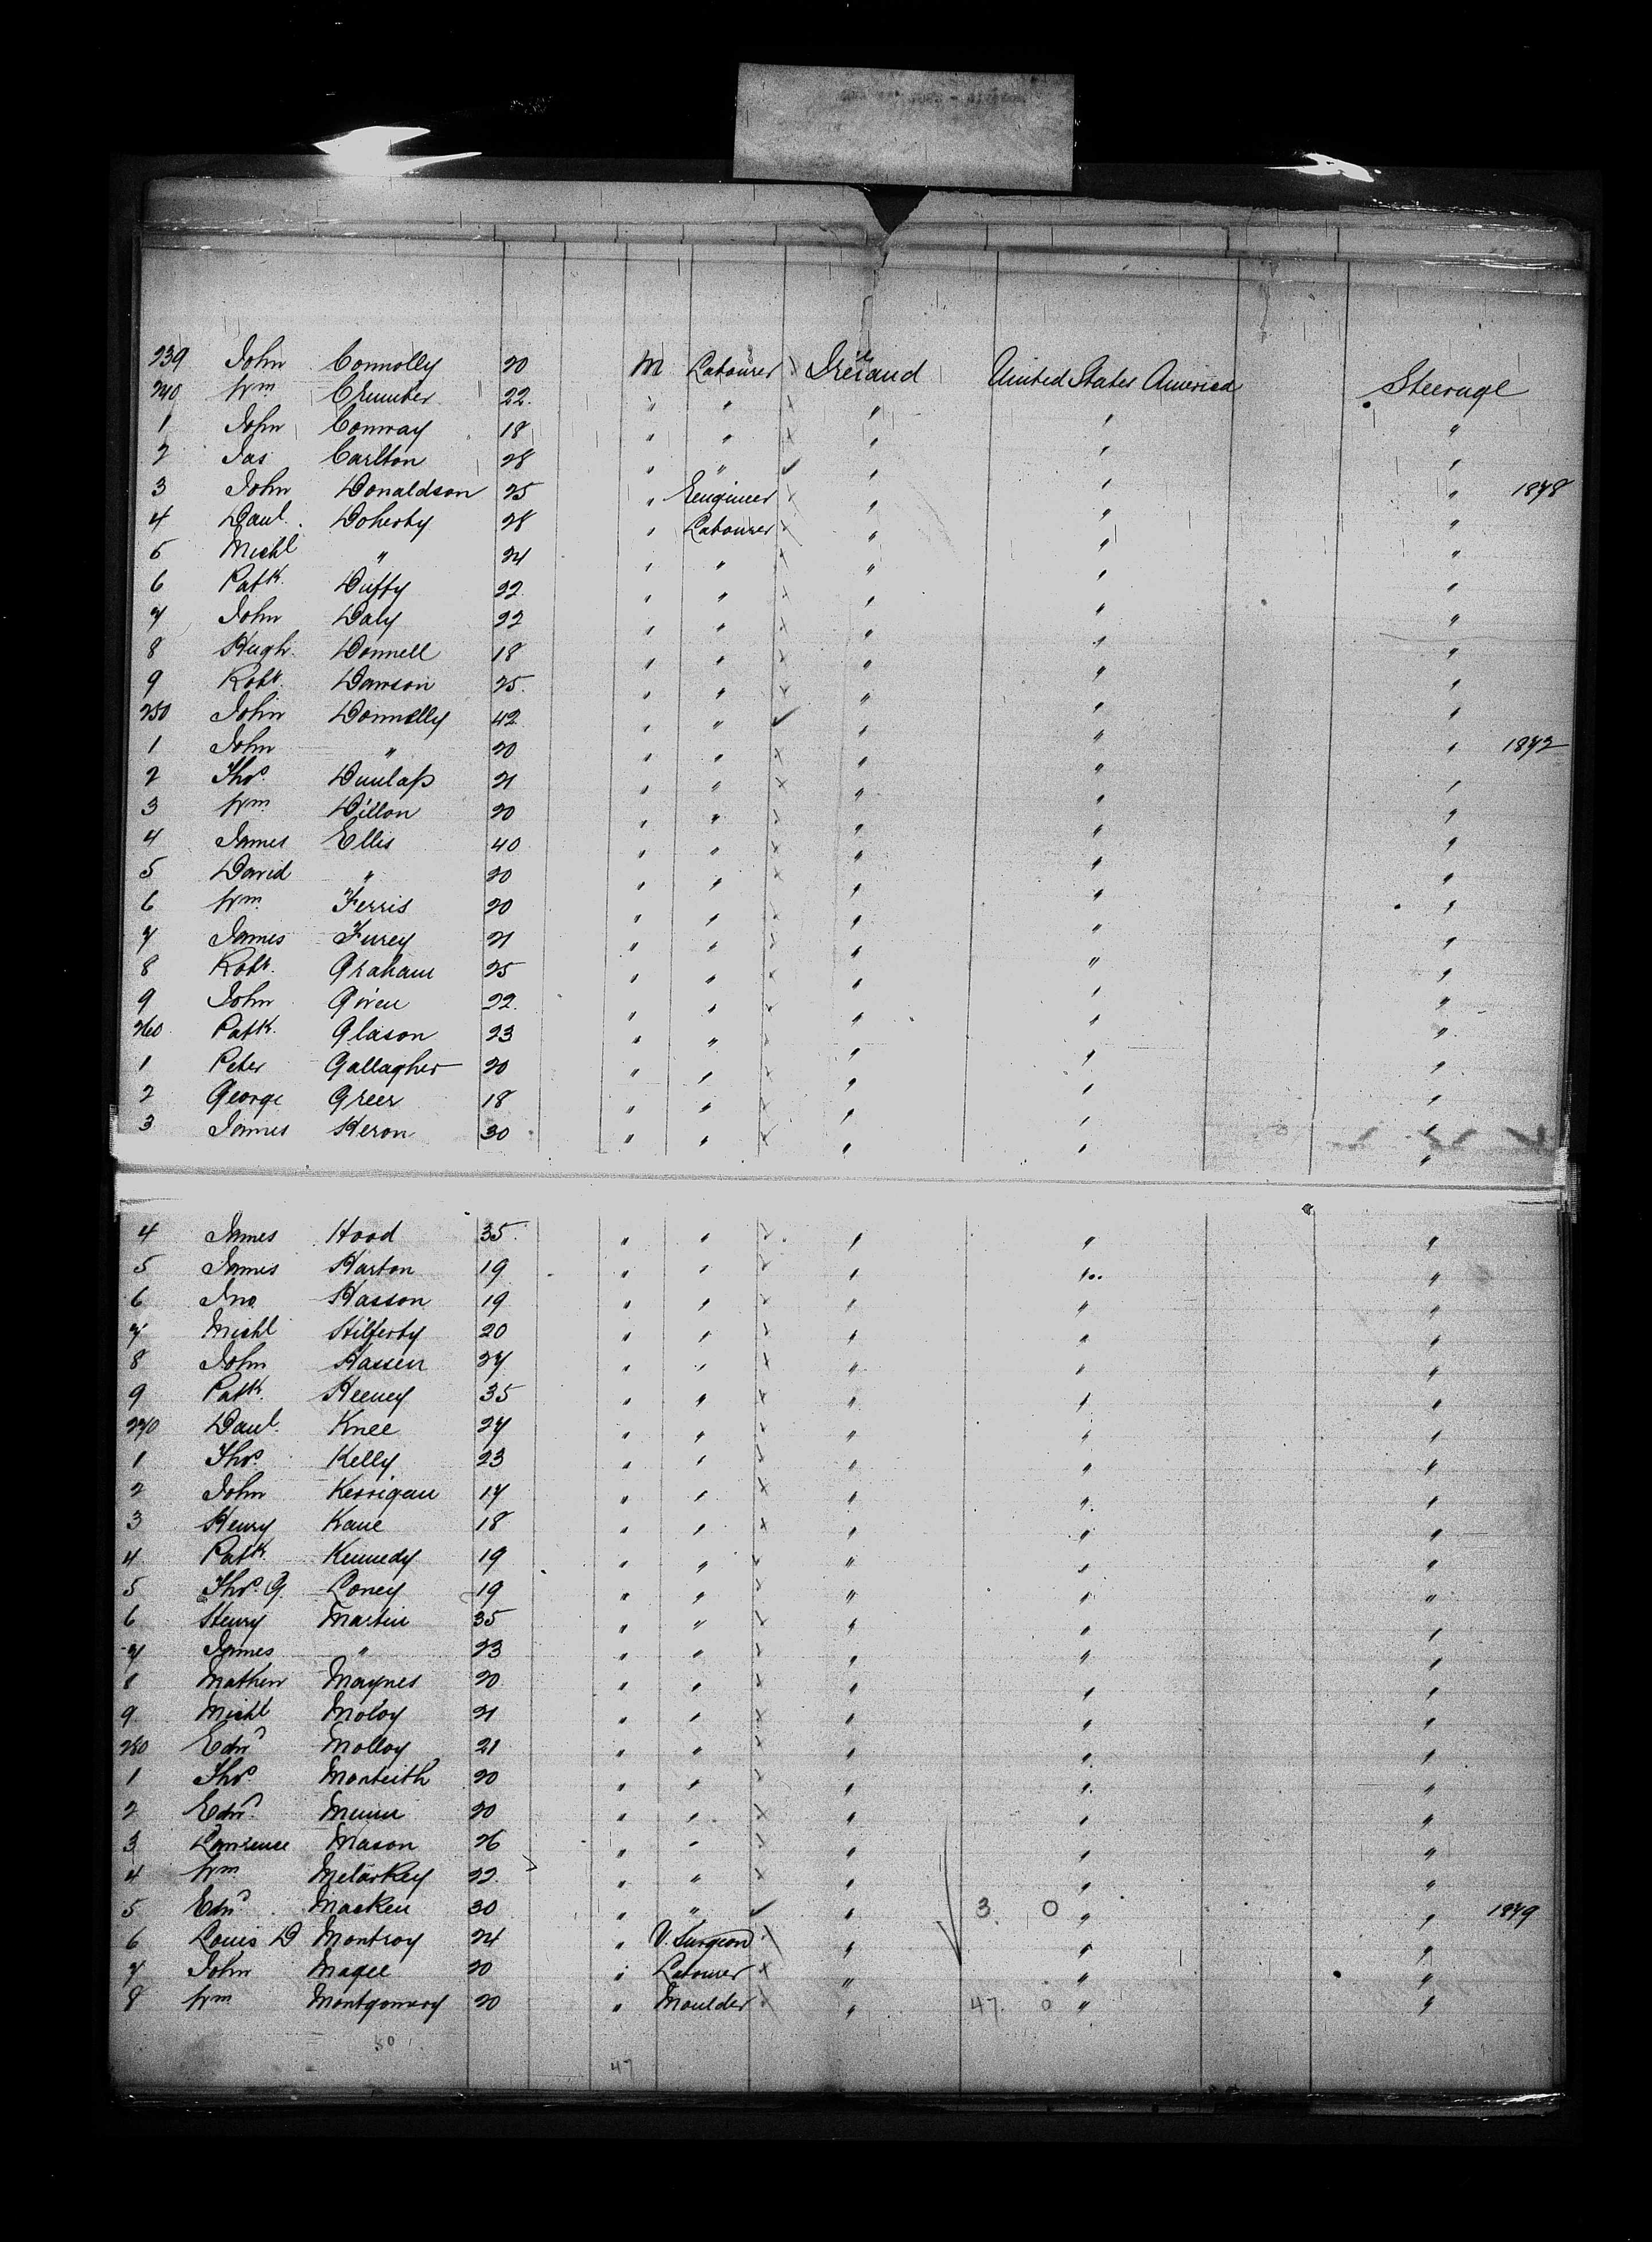 239 John Connolly 20 M Labourer Ireland United States America Steerage
240 Wm 22 " " " " "
1 John Conway 18 " " " " "
2 Jas Carlton 28 " " " " "
3 John Donaldson 25 " Eengineer " " " 1878
4 Danl. Doherty 28 " Labourer " " "
5 Michl " 24 " " " " "
6 Patk. Duffy 22 " " " " "
7 John Daly 22 " " " " "
8 Hugh Donnell 18 " " " " "
9 Robt. Dawson 25 " " " " "
250 John Donnelly 42 " " " " "
1 John " 20 " " " " " 1872
2 Thos. Dunlap 21 " " " " "
3 Wm Dillon 20 " " " " "
4 James Ellis 40 " " " " "
5 David " 20 " " " " "
6 Wm Ferris 20 " " " " "
7 James Furey 21 " " " " "
8 Robt. Graham 25 " " " " "
9 John Given 22 " " " " "
260 Patk. Glason 23 " " " " "
1 Peter Gallagher 20 " " " " "
2 George Greer 18 " " " " "
3 James Heron 30 " " " " "
4 James Hood 35 " " " " "
5 James Harton 19 " " " " "
6 Jno Hasson 19 " " " " "
7 Michl Hilferty 20 " " " " "
8 John Hassen 27 " " " " "
9 Patk. Heeney 35 " " " " "
270 Danl. Knee 27 " " " " "
1 Thos. Kelly 23 " " " " "
2 John Kerrigan 17 " " " " "
3 Henry Kane 18 " " " " "
4 Patk Kennedy 19 " " " " "
5 Thos. G. Loney 19 " " " " "
6 Henry Martin 35 " " " " "
7 James " 23 " " " " "
8 Mathew Maynes 20 " " " " "
9 Michl Moloy 21 " " " " "
280 Edwd Molloy 21 " " " " "
1 Thos. Monteith 20 " " " " "
2 Edwd. 20 " " " " "
3 Lawrence Mason 26 " " " " "
4 Wm Melarkey 22 " " " " "
5 Edwd Macken 30 " " " 3 0 " " 1879
6 Louis D Montroy 24 " V. Surgeon " " "
7 John Magee 20 " Labourer " " "
8 Wm Montgomery 20 " Moulder " 47 0 " "
50
47